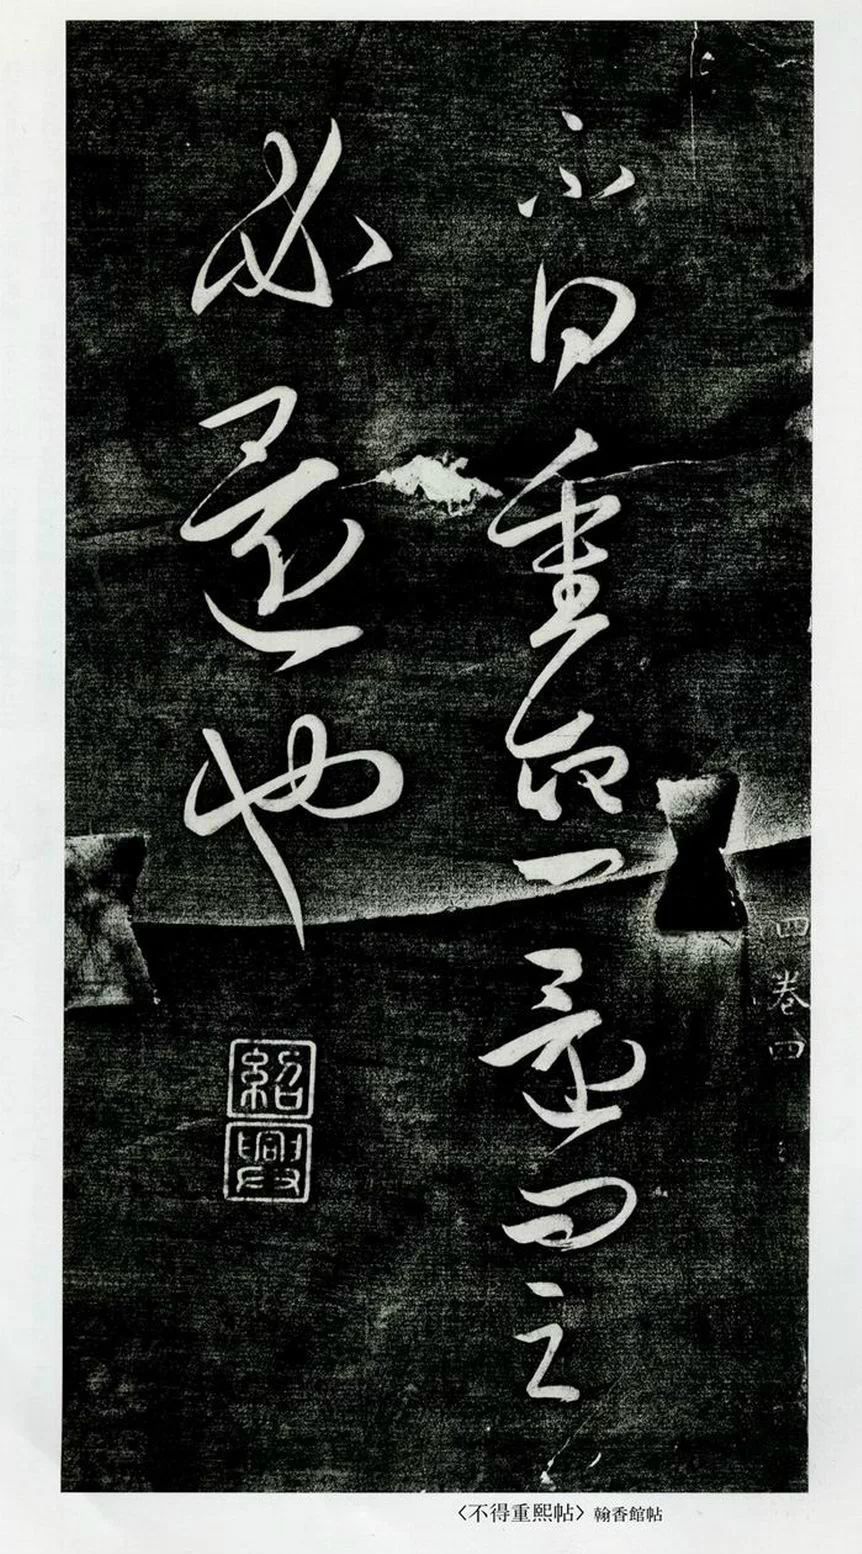 四 卷四
不日重熙還 之
必還也
紹
興
〈不得重熙帖〉 翰香館帖